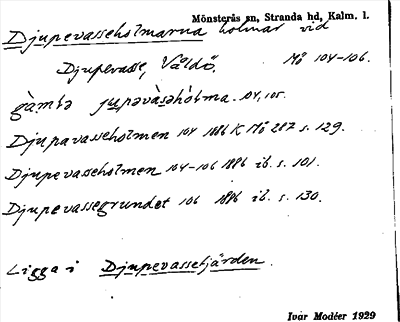 Mönsterås sn, Stranda hd, Kalm. l.
Djupevasseholmarna holmar vid
Djupevasse, Våldö. Mö 104-106.
gàmtə jupəvàsəhòtma. 104, 105.
Djupavasseholmen 104 1886 K Mö 287 s. 129.
Djupevasseholmen 104-106 1886 ib. s. 101.
Djupevassegrundet 106 1886 ib. s. 130.
Ligga i Djupevassefjärden.
Ivar Modéer 1929